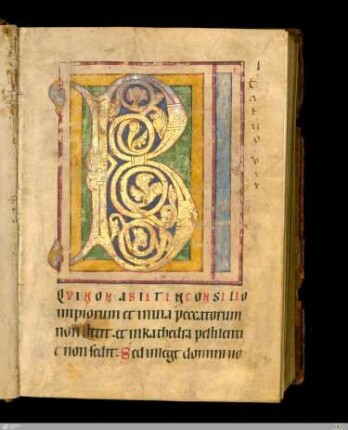 B
Eatus vir
QVI NON ABIIT IN CONSILIO
impiorum et in uia peccatorum
non stetit. et in kathedra pestilenti
e non sedit. Sed in lege domini uo